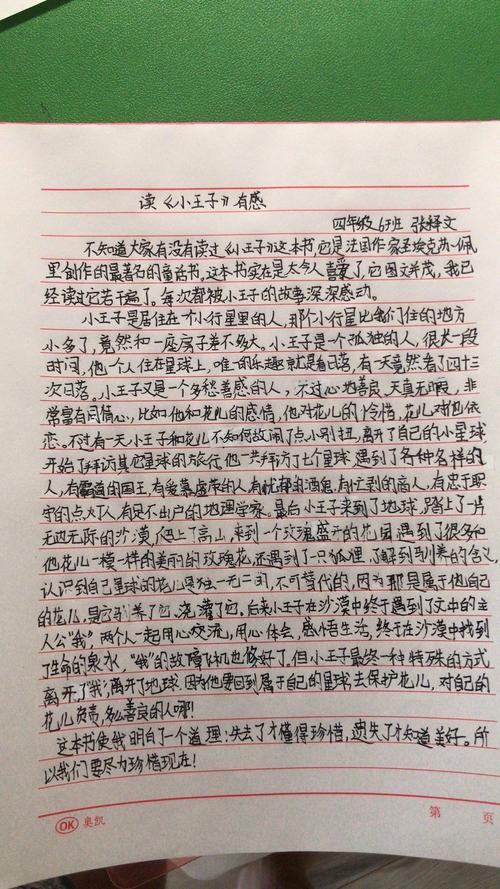 读《小王子》有感
四年级6班 张释文
不知道大家有没有读过《小王子》这本书,它是法国作家圣埃克苏-佩
里创作的最著名的童话书,这本书实在是太令人喜爱了,它图文并茂,我已
经读过它若干篇了。每次都被小王子的故事深深感动。
小王子是居住在一个小行星里的人,那个小行星比我们住的地方
小多了,竟然和一座房子差不多大。小王子是一个孤独的人,很长一段
时间,他一个人住在星球上,唯一的乐趣就是看日落,有一天竟然看了四十三
次日落。小王子又是一个多愁善感的人,不过心地善良、天真无暇,非
常富有同情心,比如他和花儿的感情,他对花儿的怜惜,花儿对他依
恋。不过有一天小王子和花儿不知何故闹了点小别扭,离开了自己的小星球
开始了拜访其它星球的旅行,他一共拜访了七个星球,遇到了各种各样的
人,有霸道的国王,有爱慕虚荣的人,有忧郁的酒鬼,有忙剥的商人,有忠于职
守的点灯人,有足不出户的地理学家。最后小王子来到了地球,踏上了一片
无边无际的沙漠,爬上了高山,来到一个玫瑰盛开的花园,遇到了很多和
他花儿一模一样的美丽的玫瑰花,还遇到了一只狐狸,了解到驯养的含义,
认识到自己星球的花儿是独一无二的,不可替代的,因为那是属于他自己
的花儿,是它驯养了它,浇灌了它,后来小王子在沙漠中终于遇到了文中的主
人公"我",两个人一起用心交流,用心体会,感悟生活,终于在沙漠中找到
了生命的泉水,"我"的故障飞机也修好了。但小王子最终一种特殊的方式
离开了"我",离开了地球,因为他要回到属于自己的星球,去保护花儿,对自己的
花儿负责,多么善良的人哪!
这本书使我明白了一个道理:失去了才懂得珍惜,遗失了才知道美好。所
以我们要尽力珍惜现在!
OK 奥凯
第 页